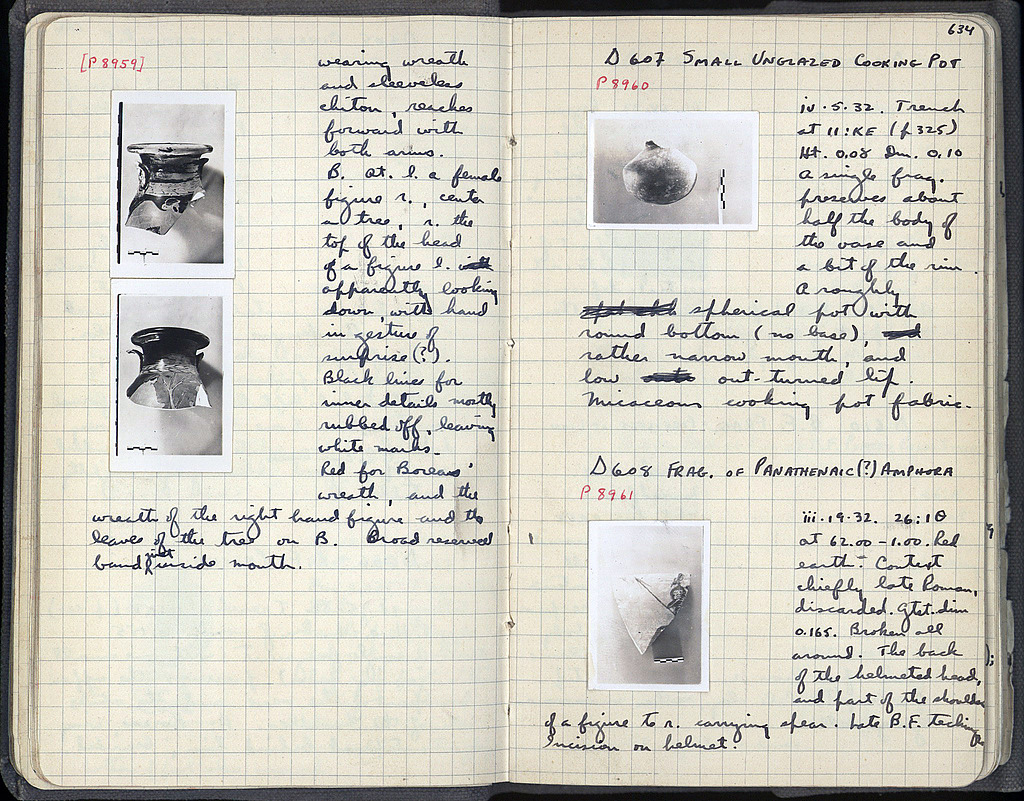 [P 8959]
wearing wreath
and sleeveless
chiton, reaches
forward with
both arms.
B. At. l. a female
figure r., center
a tree, r. the
top of the head
of a figure l.
apparently looking
down, with hand
in gesture of
surprise (?).
Black lines for
inner details mostly
rubbed off, leaving
white marks.
Red for Boreas'
wreath, and the
wreath of the right hand figure and the
leaves of the tree on B. Broad reserved
band just inside mouth.
634
D 607 SMALL UNGLAZED COOKING POT
P 8960
iv.5.32. Trench
at 11:KE (p 325)
Ht. 0.08 Dm. 0.10
A single frag.
preserves about
half the body of
the vase and
a bit of the rim.
A roughly
spherical pot with
round bottom (no base),
rather narrow mouth, and
low out-turned lip.
Micaceous cooking pot fabric.
D 608 FRAG. OF PANATHENAIC (?) AMPHORA
P 8961
iii.19.32. 26:1Θ
at 62.00-1.00. Red
earth. Context
chiefly late Roman,
discarded. Gtst. dim
0.165. Broken all
around. The back
of the helmeted head,
and part of the shoulder
of a figure to r. carrying spear. Late B.F. technique
Incision on helmet.